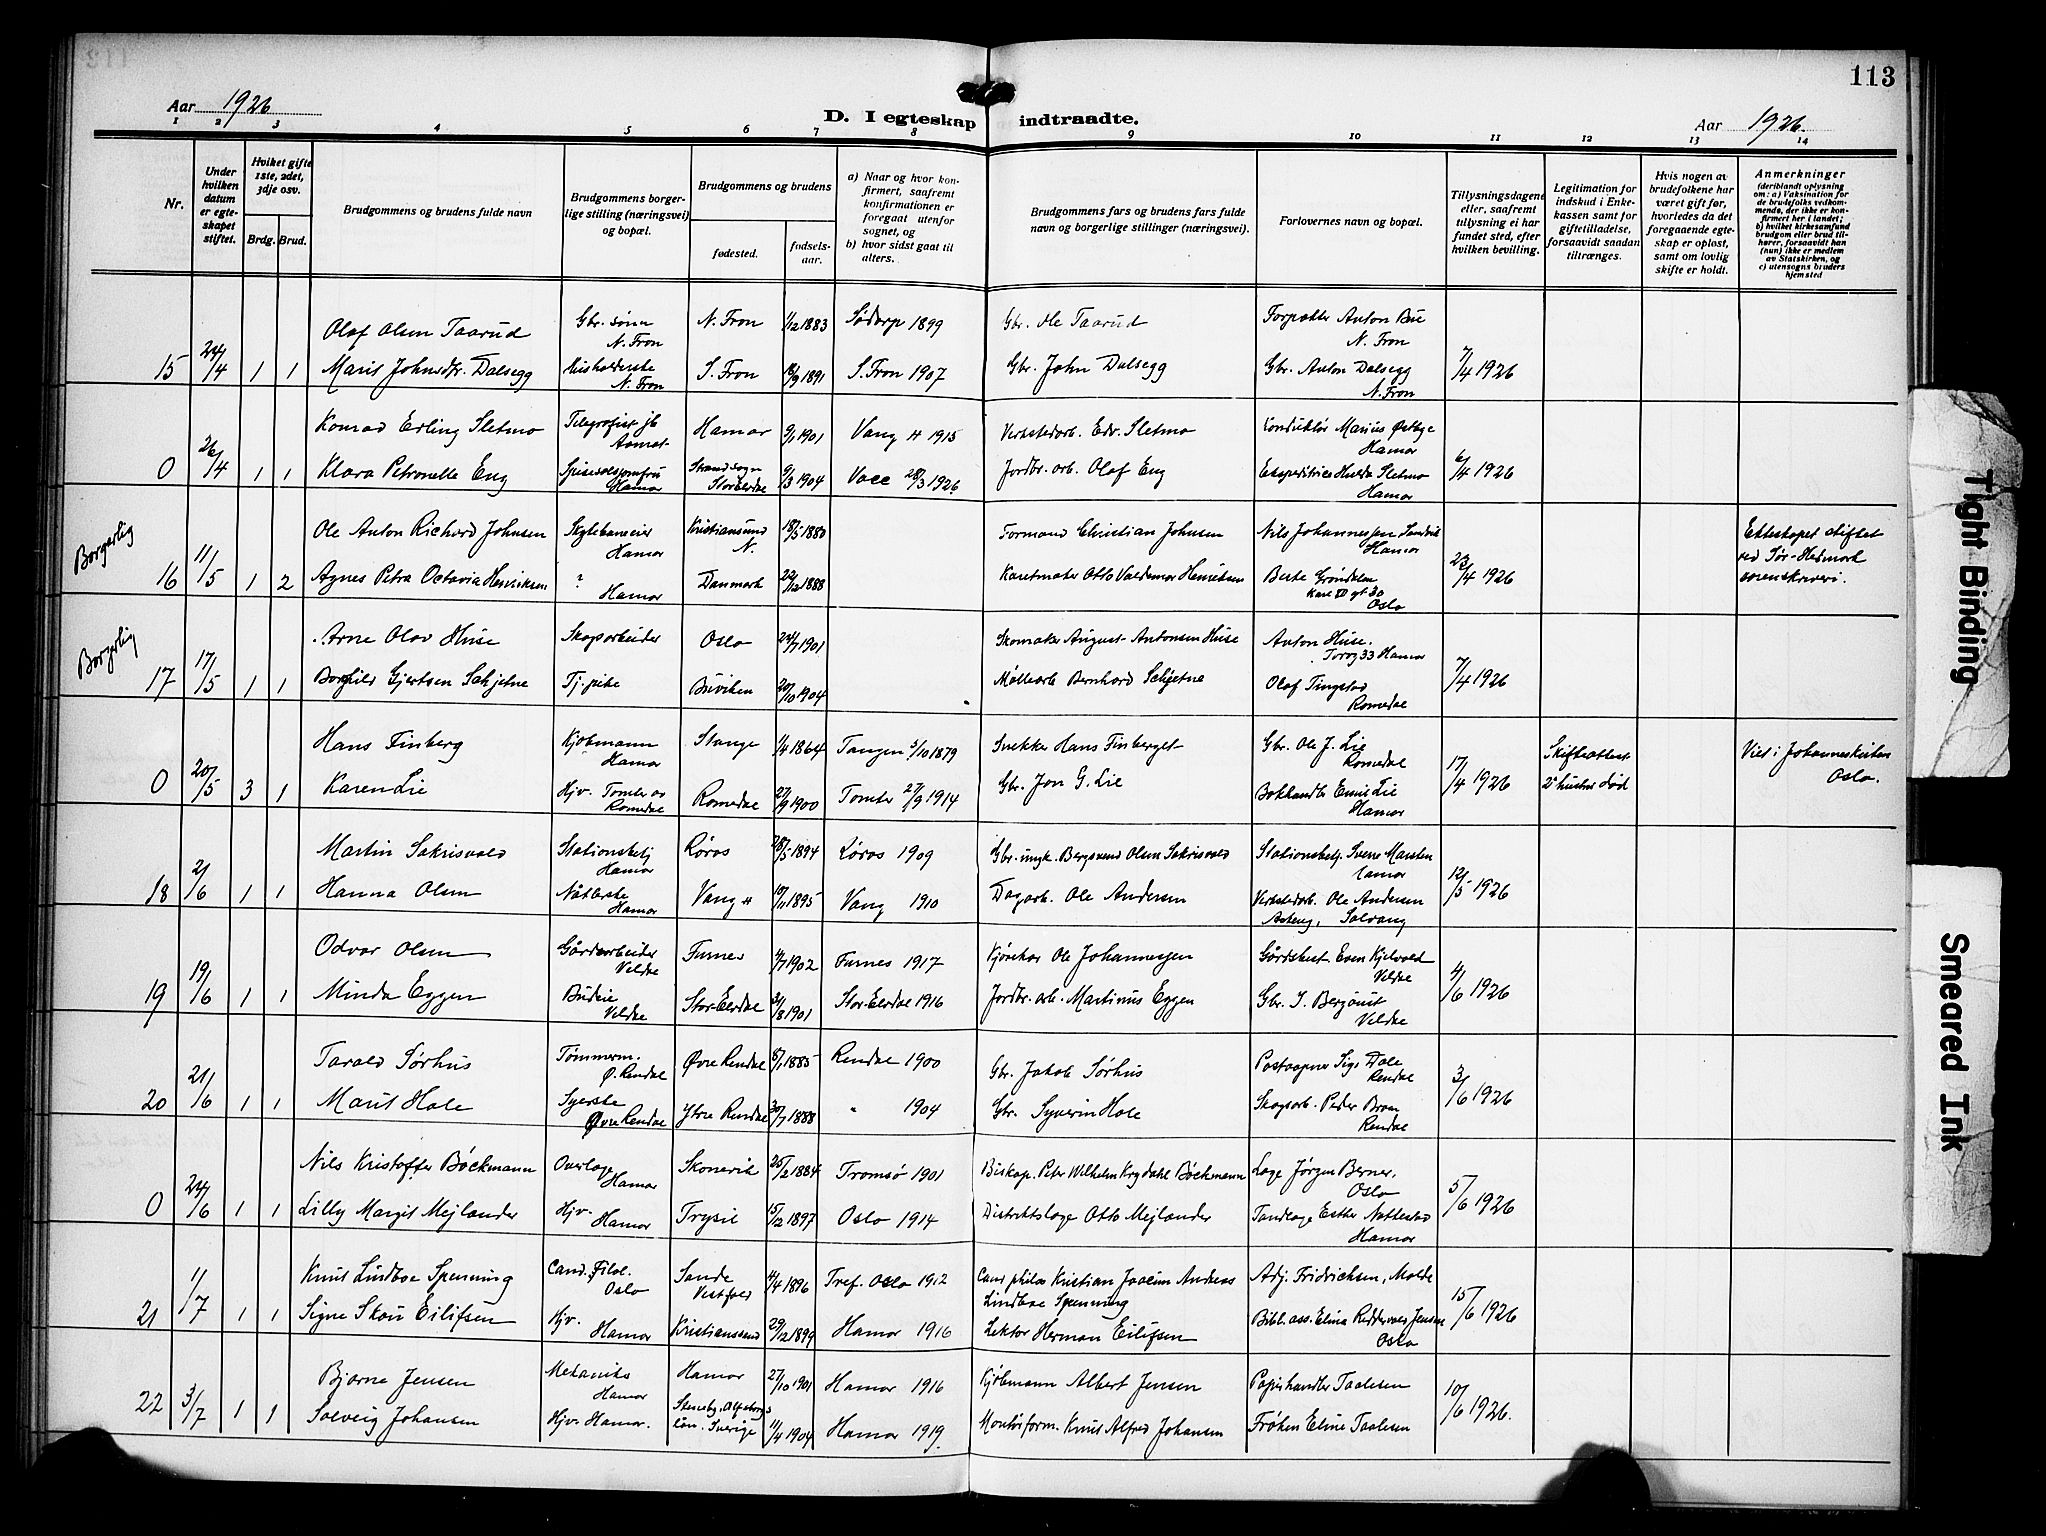 113
Aar 1926
D. I egteskap indtraadte.
Aar 1926.
1 2 3 4 5 6 7 8 9 10 11 12 13 14
Nr.
Under hvilken datum er egteskapet stiftet.
Hvilket gifte 1ste, 2det, 3dje osv.
Brdg. Brud.
Brudgommens og brudens fulde navn
Brudgommens borgerlige stilling (næringsvei) og bopæl.
Brudgommens og brudens
fødested.
fødselsaar.
a) Naar og hvor konfirmert, saafremt konfirmationen er foregaat utenfor sognet, og
b) hvor sidst gaat til alters.
Brudgommens fars og brudens fars fulde navn og borgerlige stillinger (næringsvei).
Forlovernes navn og bopæl.
Tillysningsdagene eller, saafremt tillysning ei har fundet sted, efter hvilken bevilling.
Legitimation for indskud i Enkekassen samt for giftetilladelse, forsaavidt saadan tiltrænges.
Hvis nogen av brudefolkene har været gift før, hvorledes da det foregaaende egteskap er opløst, samt om lovlig skifte er holdt.
Anmerkninger
(deriblandt oplysning om: a) Vaksination for de brudefolks vedkommende, der ikke er konfirmert her i landet; b) hvilket kirkesamfund brudgom eller brud tilhører, forsaavidt han (hun) ikke er medlem av Statskirken, og c) utensogns bruders hjemsted
Olaf Olsen Taarud Gbr. sønn N. Fron N. Fron 1/12 1883 Sødorp 1899 Gbr. Ole Taarud Forpakter Anton Bue N. Fron
15 24/4 1 1 Marit Johnsdr. Dalsegg Husholderske N. Fron S. Fron 18/9 1891 S. Fron 1907 Gbr. John Dalsegg Gbr. Anton Dalsegg N. Fron 7/4 1926
Konrad Erling Sletmo Telegrafist jb Aamot Hamar 9/1 1901 Vang H 1915 Verkstedarb. Edv. Sletmo Konduktør Marius Østbye Hamar
0 26/4 1 1 Klara Petronelle Eng Spisesalsjomfru Hamar Strand sogn Storelvdal 9/3 1904 28/3 1926 Jordbr. arb. Olaf Eng Ekspeditrise Hulda Sletmo Hamar 6/4 1926
Borgerlig
Ole Anton Richard Johnsen Skytebaneeier Hamar Kristiansund N. 18/5 1880 Formand Christian Johnsen Nils Johannessen Sandvik Hamar Ekteskapet stiftet
16 11/5 1 2 Agnes Petra Octavia Henriksen ? Hamar Danmark 22/12 1888 Karetmaker Otto Valdemar Henriksen Grøndalen Oslo 23/4 1926 ved Sør-Hedmark sorenskriveri.
Borgerlig
Arne Olav Huse Skogsarbeider Oslo 24/7 1901 Skomaker August Antonsen Huse Anton Huse. Torvg 33 Hamar
17 17/5 1 1 Borghild Gjertsen Selijetne Tj. pike Buviken 20/10 1904 Møllearb Bernhard Selijetne Olaf Tingstad Romedal 7/4 1926
Hans Finberg Kjøbmann Hamar Stange 1/4 1864 Tangen 5/10 1879 Snekker Hans Finberget Gbr. Ole J. Lie Romedal Skifteattest Viet i Johanneskirken
0 20/5 3 1 Karen Lie Hjv. Tomter av Romedal Romedal 27/9 1900 Tomter 27/9 1914 Gbr. Jon G. Lie Bokhandler Emil Lie Hamar 17/4 1926 2. hustru død Oslo.
Martin Sakrisvold Stationsbetj Hamar Røros 28/5 1894 Røros 1909 Gbr. ungk. Bergsvend Olsen Sakrisvold Stationsbetj. Svene Marsten Hamar
18 2/6 1 1 Hanna Olsen Nåtlerske Hamar Vang H 10/11 1895 Vang 1910 Dagarb. Ole Andersen Verkstedarb. Ole Andersen Solvang 12/5 1926
Odvar Olsen Gårdsarbeider Veldre Furnes 4/7 1902 Furnes 1917 Kjørekar Ole Johannessen Gårdsbest Even Kjelvold Veldre
19 19/6 1 1 Minda Eggen Budeie Veldre Stor-Elvdal 31/8 1901 Stor-Elvdal 1916 Jordbr. arb. Martinus Eggen Gbr. S. Bergsmit Veldre 4/6 1926
Tarald Sørhus Tømmerm. Ø. Rendal Øvre Rendal 8/1 1885 Rendal 1900 Gbr. Jakob Sørhus Postaapner Sigv. Dale Rendal
20 21/6 1 1 Marit Hole Syerske Øvre Rendal Ytre Rendal 30/7 1888 " 1904 Gbr. Syverin Hole Skogsarb. Peder Bron Rendal 3/6 1926
Nils Kristoffer Bøckmann Overlæge Hamar Skonevik 25/2 1884 Tromsø 1901 Biskop. Peter Wilhelm Krøydahl Bøckmann Læge Jørgen Berner, Oslo
0 24/6 1 1 Lilly Margit Mejlænder Hjv. Hamar Trysil 15/12 1897 Oslo 1914 Distriktslæge Otto Mejlænder Tandlæge Esther Nattestad Hamar 5/6 1926
Knut Lindboe Spenning Cand. Filol. Oslo Sande Vestfold 4/4 1896 Tref. Oslo 1912 Cand philos Kristian Joacim Andreas Lindboe Spenning Adj. Fridrichsen, Molde
21 1/7 1 1 Signe Skau Eilifsen Hjv. Hamar Kristianssand 29/12 1899 Hamar 1916 Lektor Herman Eilifsen Bibl. ass. Elina Jensen Oslo 15/6 1926
Bjarne Jensen Mekaniker Hamar Hamar 27/10 1901 Hamar 1916 Kjøbmann Albert Jensen Papirhandler Paalesen
22 3/7 1 1 Solveig Johansen Hjv. Hamar. Steneby, Elfsborgs län. Sverige 11/4 1904 Hamar 1919. Montørform. Knut Alfred Johansen Frøken Eline Paalesen 10/6 1926.
Tight Binding
Smeared Ink